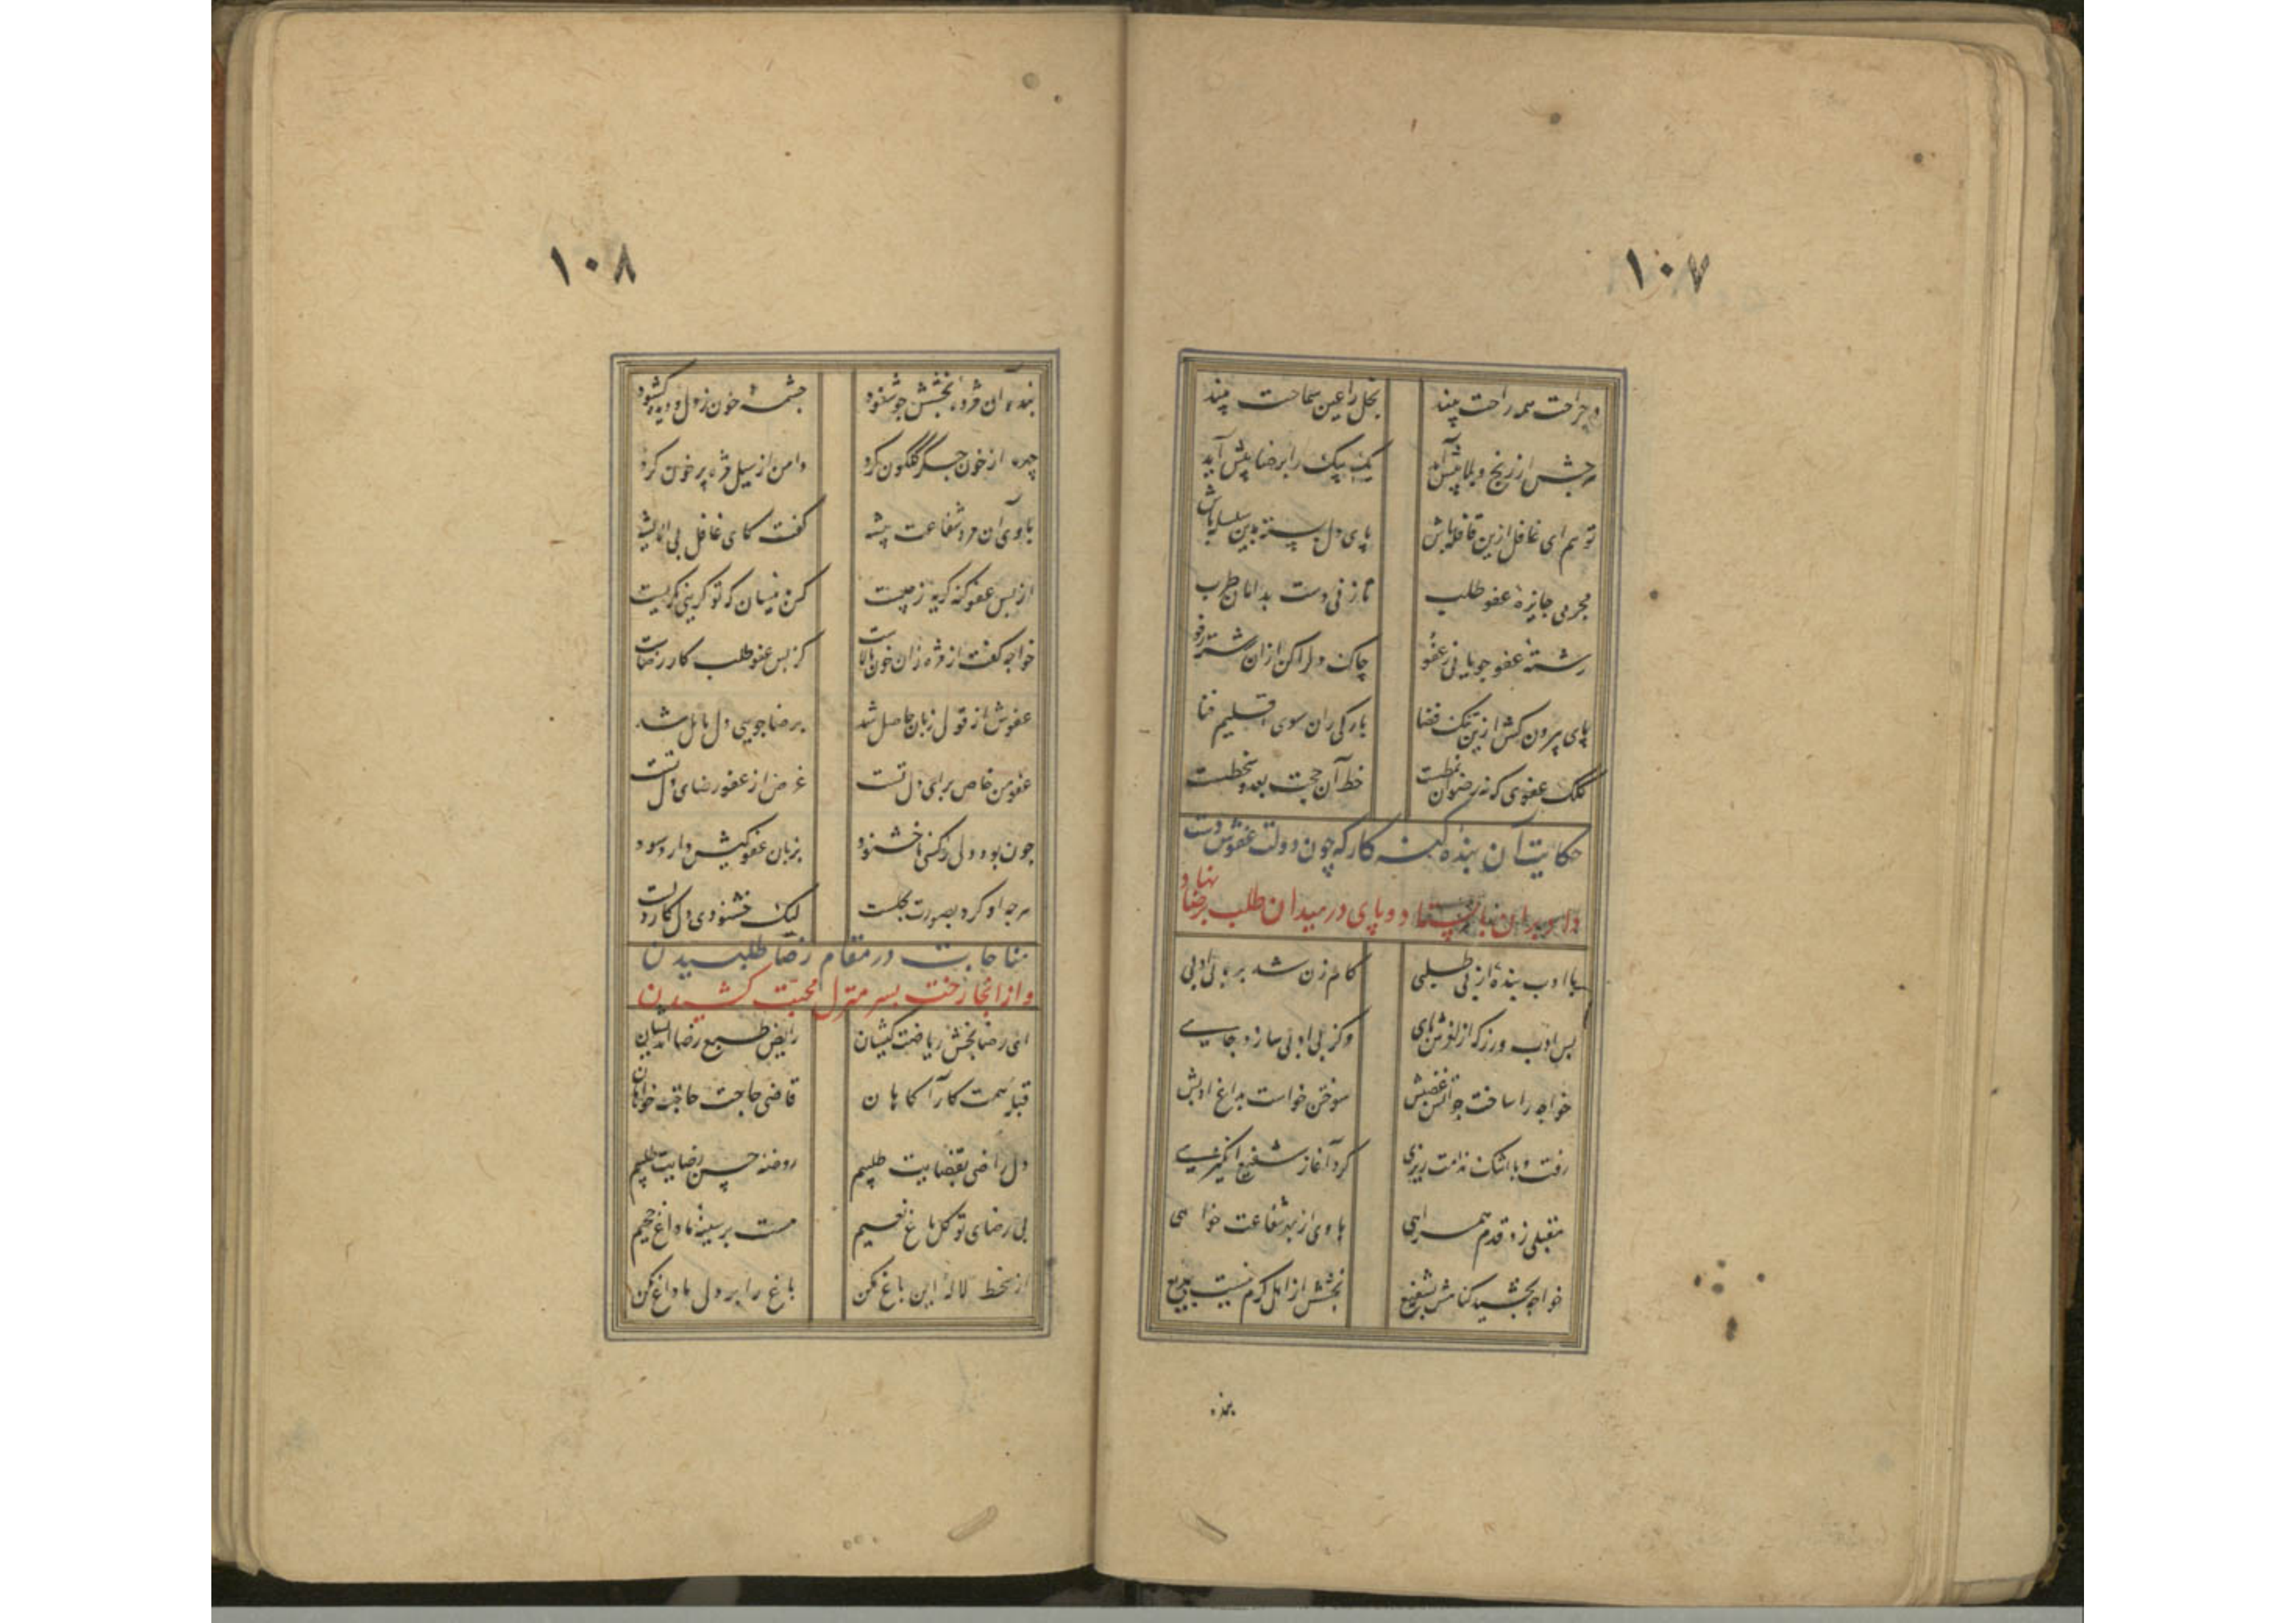 ١٠٧
در جراحت همه راحت بیند بخل را عین سماحت بیند
هر چش از رنج و بلا پیش آید یک بیک را برضا پیش آید
تو هم ای غافل ازین قافله باش پای دل بسته بدین سلسله باش
مجرمی جایزهٔ عفو طلب تا زنی دست بدامان طرب
رشتهٔ عفو جو یابی ز عفو چاک دل را کن ازان رشته رفو
پای بیرون کش ازین تنک فضا بارکی ران سوی اقلیم فنا
کلک عفوی که نه رضوان نمطست خط آن حجت بعد و سخطست
حکایت آن بنده کنه کار که چون دولت عفوش دست
داد بدان نایستاد و پای در میدان طلب رضا نهاد
با ادب بندهٔ از بی طلبی کام زن شد بره بی ادبی
بس ادب ورز که از لغزش پای وکز بی ادبی سازد جای
خواجه را ساخت جو آتش غضبش سوختن خواست بداغ ادبش
رفت و با اشک ندامت ریزی کرد آغاز شفیع انگیزی
مقبلی زد قدم همراهی با وی از بهر شفاعت خواهی
خواجه بخشید کناهش بشفیع بخشش از اهل کرم نیست بدیع
بنده
١٠٨
بنده آن مژده بخشش جو شنود چشمهٔ خون ز دل و دیده کشود
چهره از خون جکر کلکون کرد دامن از سیل مژه پر خون کرد
با وی آن مرد شفاعت پیشه کفت کای غافل بی اندیشه
از پس عفو کنه کریه ز چیست کس نه زینسان که تو کریی نکریست
خواجه کفت از مژه زان خون پالاست کز پس عفو طلب کار رضاست
عفوش از قول زبان حاصل شد برضا جویی دل مایل شد
عفو من خاص برای دل تست غرض از عفو رضای دل تست
چون بود دل ز کسی ناخشنود بزبان عفو کیش دارد سود
هر چه او کرد بصورت بحلست لیک خشنودی دل کار دلست
مناجات در مقام رضا طلبیدن
و از انجا رخت بسر منزل محبت کشیدن
ای رضا بخش ریاضت کیشان رایض طبع رضا اندیشان
قبلهٔ همت کار آکاهان قاضی حاجت حاجت خواهان
دل راضی بقضایت طلبیم روضهٔ حسن رضایت طلبیم
بی رضای تو کل باغ نعیم هست بر سینهٔ ما داغ جحیم
از سخط لالهٔ این باغ مکن باغ را بر دل ما داغ مکن